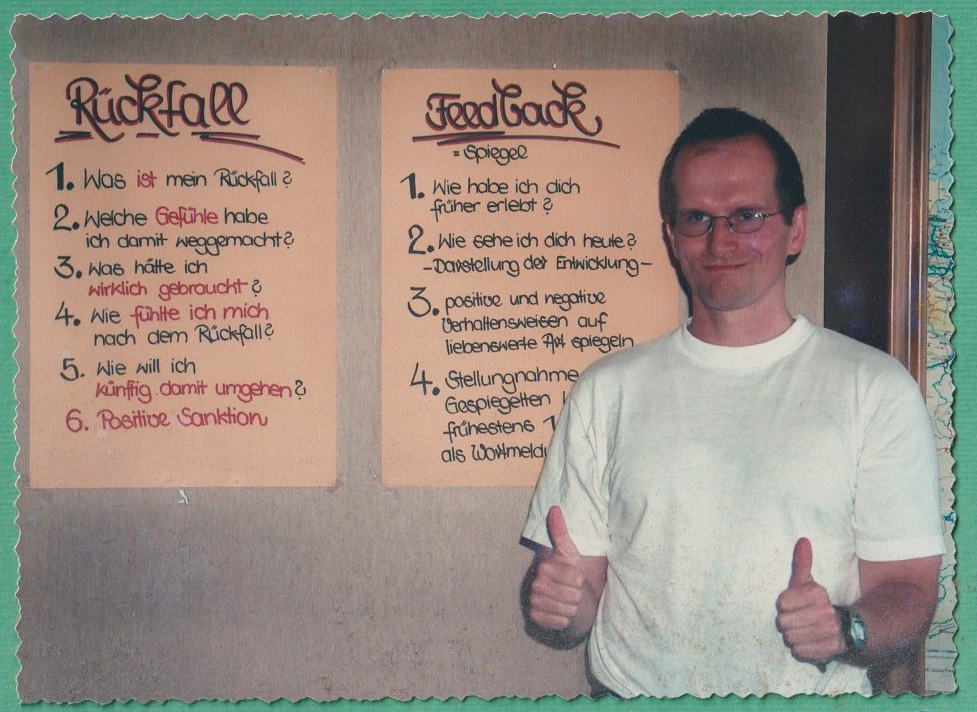 Rückfall
1. Was ist mein Rückfall?
2. Welche Gefühle habe
ich damit weggemacht?
3. Was hätte ich
wirklich gebraucht?
4. Wie fühlte ich mich
nach dem Rückfall?
5. Wie will ich
künftig damit umgehen?
6. Positive Sanktion
Feedback
= Spiegel
1. Wie habe ich dich
früher erlebt?
2. Wie sehe ich dich heute?
-Darstellung der Entwicklung-
3. positive und negative
Verhaltensweisen auf
liebenswerte Art spiegeln
4. Stellungnahme
Gespiegelten
frühestens 1
als Wortmeldu